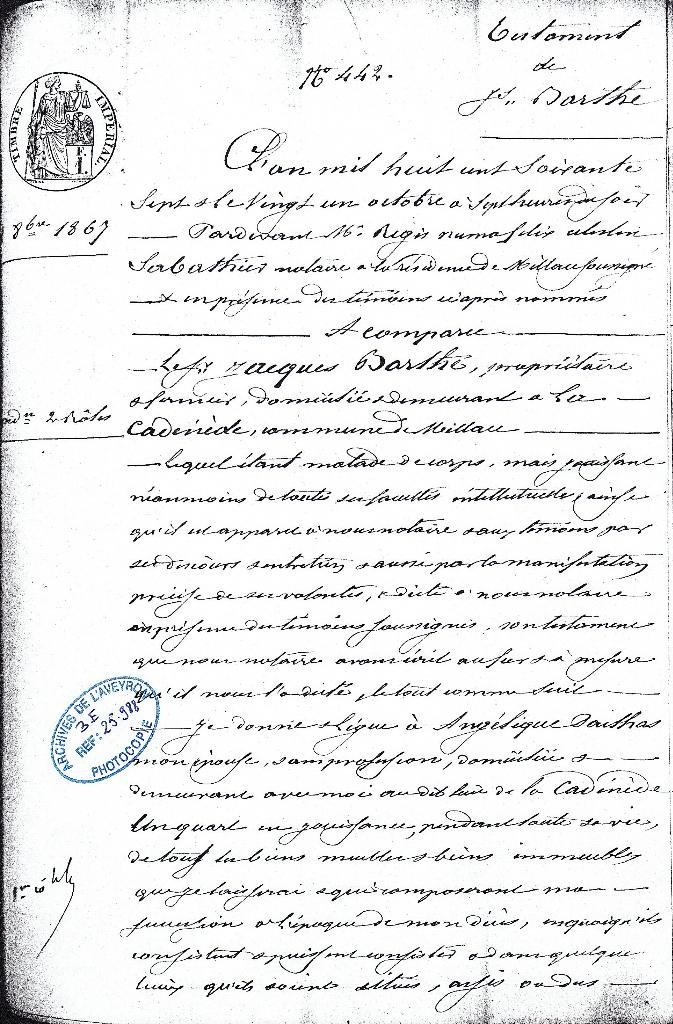 Testament
de
Js. Barthe
N° 442.
TIMBRE IMPERIAL
L'an mil huit cent soixante
sept & le vingt un octobre à sept heures du soir
8bre 1867
Pardevant Me Regis numa felix
Sabathier notaire a la résidence de Millau soussigné
& en présence des témoins ci après nommés
A comparu
Le Sr Jacques Barthe, propriétaire
& fermier, domicilié & demeurant a La
2 Rôles
Cadenède, commune de Millau
Lequel étant malade de corps, mais jouissant
néanmoins de toutes ses facultés intellectuelles, ainsi
qu'il est apparu à nous notaire & aux témoins par
ses discours & entretien & aussi par la manifestation
précise de ses volontés, a dicté à nous notaire
en présence des témoins soussignés, son testament
que nous notaire avons écrit au fur & à mesure
qu'il nous l'a dicté, le tout comme suit
ARCHIVES DE L'AVEYRON
3E
REF: 25.988
PHOTOCOPIE
Je donne & Lègue à Angélique
mon épouse, sans profession, domiciliée &
demeurant avec moi au dit lieu de la Cadenède
Un quart en jouissance, pendant toute sa vie,
de tous les biens meubles & biens immeubles
que je laisserai & qui composeront ma
succession a l'époque de mon décès, en quoi qu'ils
consistent & puissent consister & dans quelque
lieux qu'ils soient situés, assis ou dus